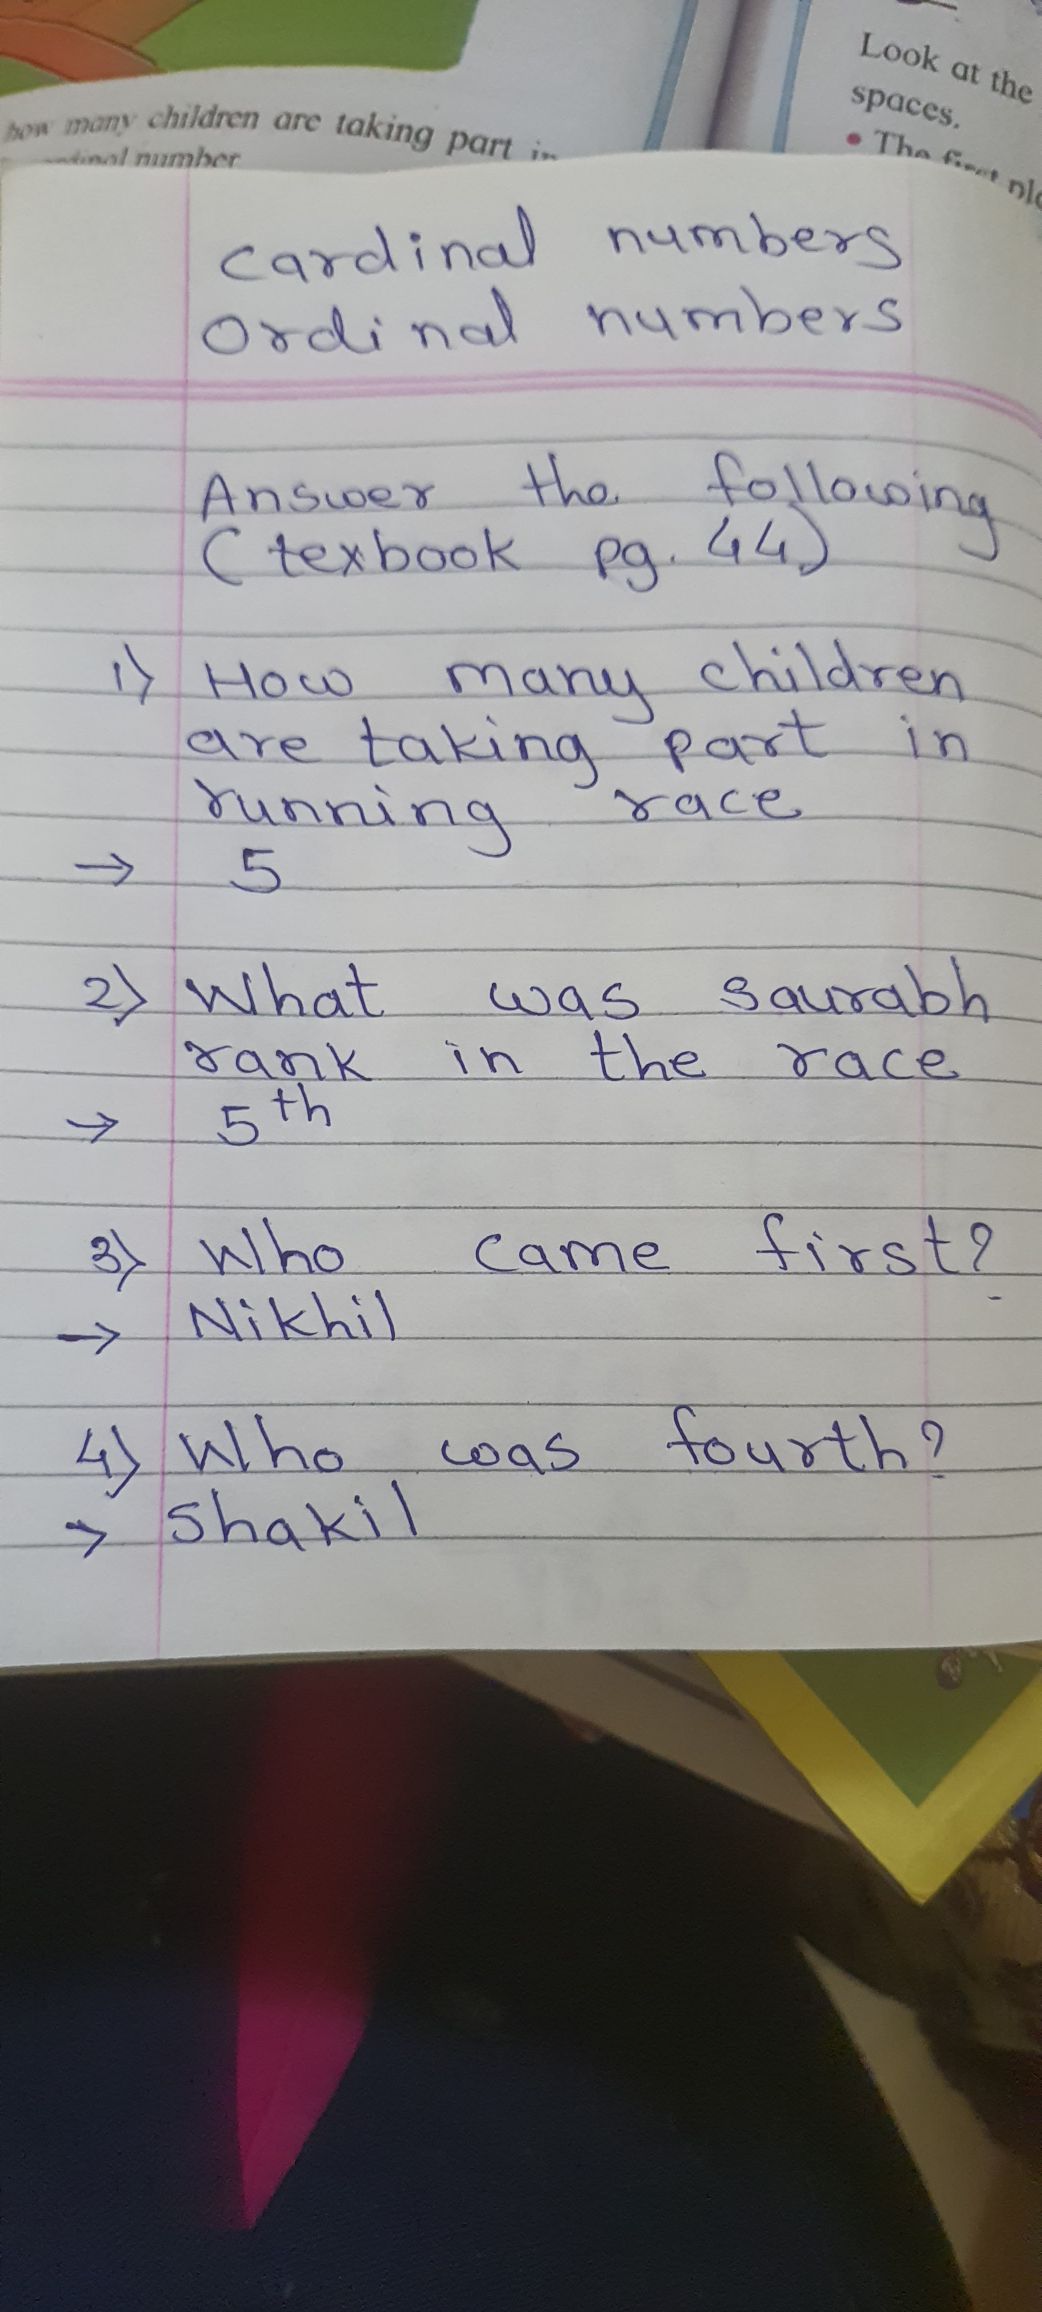 how many children are taking part in
number
Look at the
spaces.
• The first
cardinal numbers
Ordinal numbers
Answer the following
(texbook pg. 44)
1) How many children
are taking part in
running race
→ 5
2) What was saurabh
rank in the race
→ 5th
3) Who came first?
→ Nikhil
4) Who was fourth?
→ Shakil